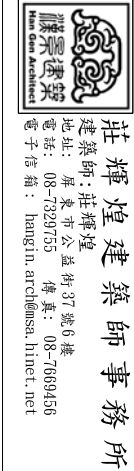 漢景建築
Han Gen Architect
莊輝煌建築師事務所
建築師：莊輝煌
地址: 屏東市公益街37號6樓
電話: 08-7329755 傳真: 08-7669456
電子信箱: hangin.arch@msa.hinet.net